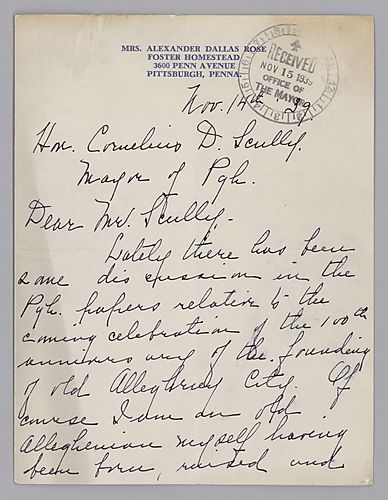 MRS. ALEXANDER DALLAS ROSE
FOSTER HOMESTEAD
3600 PENN AVENUE
PITTSBURGH, PENNA.
RECEIVED
NOV 15 1939
OFFICE OF
THE MAYOR
Nov. 14th '39
Hon. Cornelius D. Scully.
Mayor of Pgh.
Dear Mr. Scully.-
Lately there has been
some discussion in the
Pgh. papers relative to the
coming celebration of the 100th
anniversary of the founding
of old Allegheny City. Of
course I am an old
Alleghenian myself having
been born, raised and